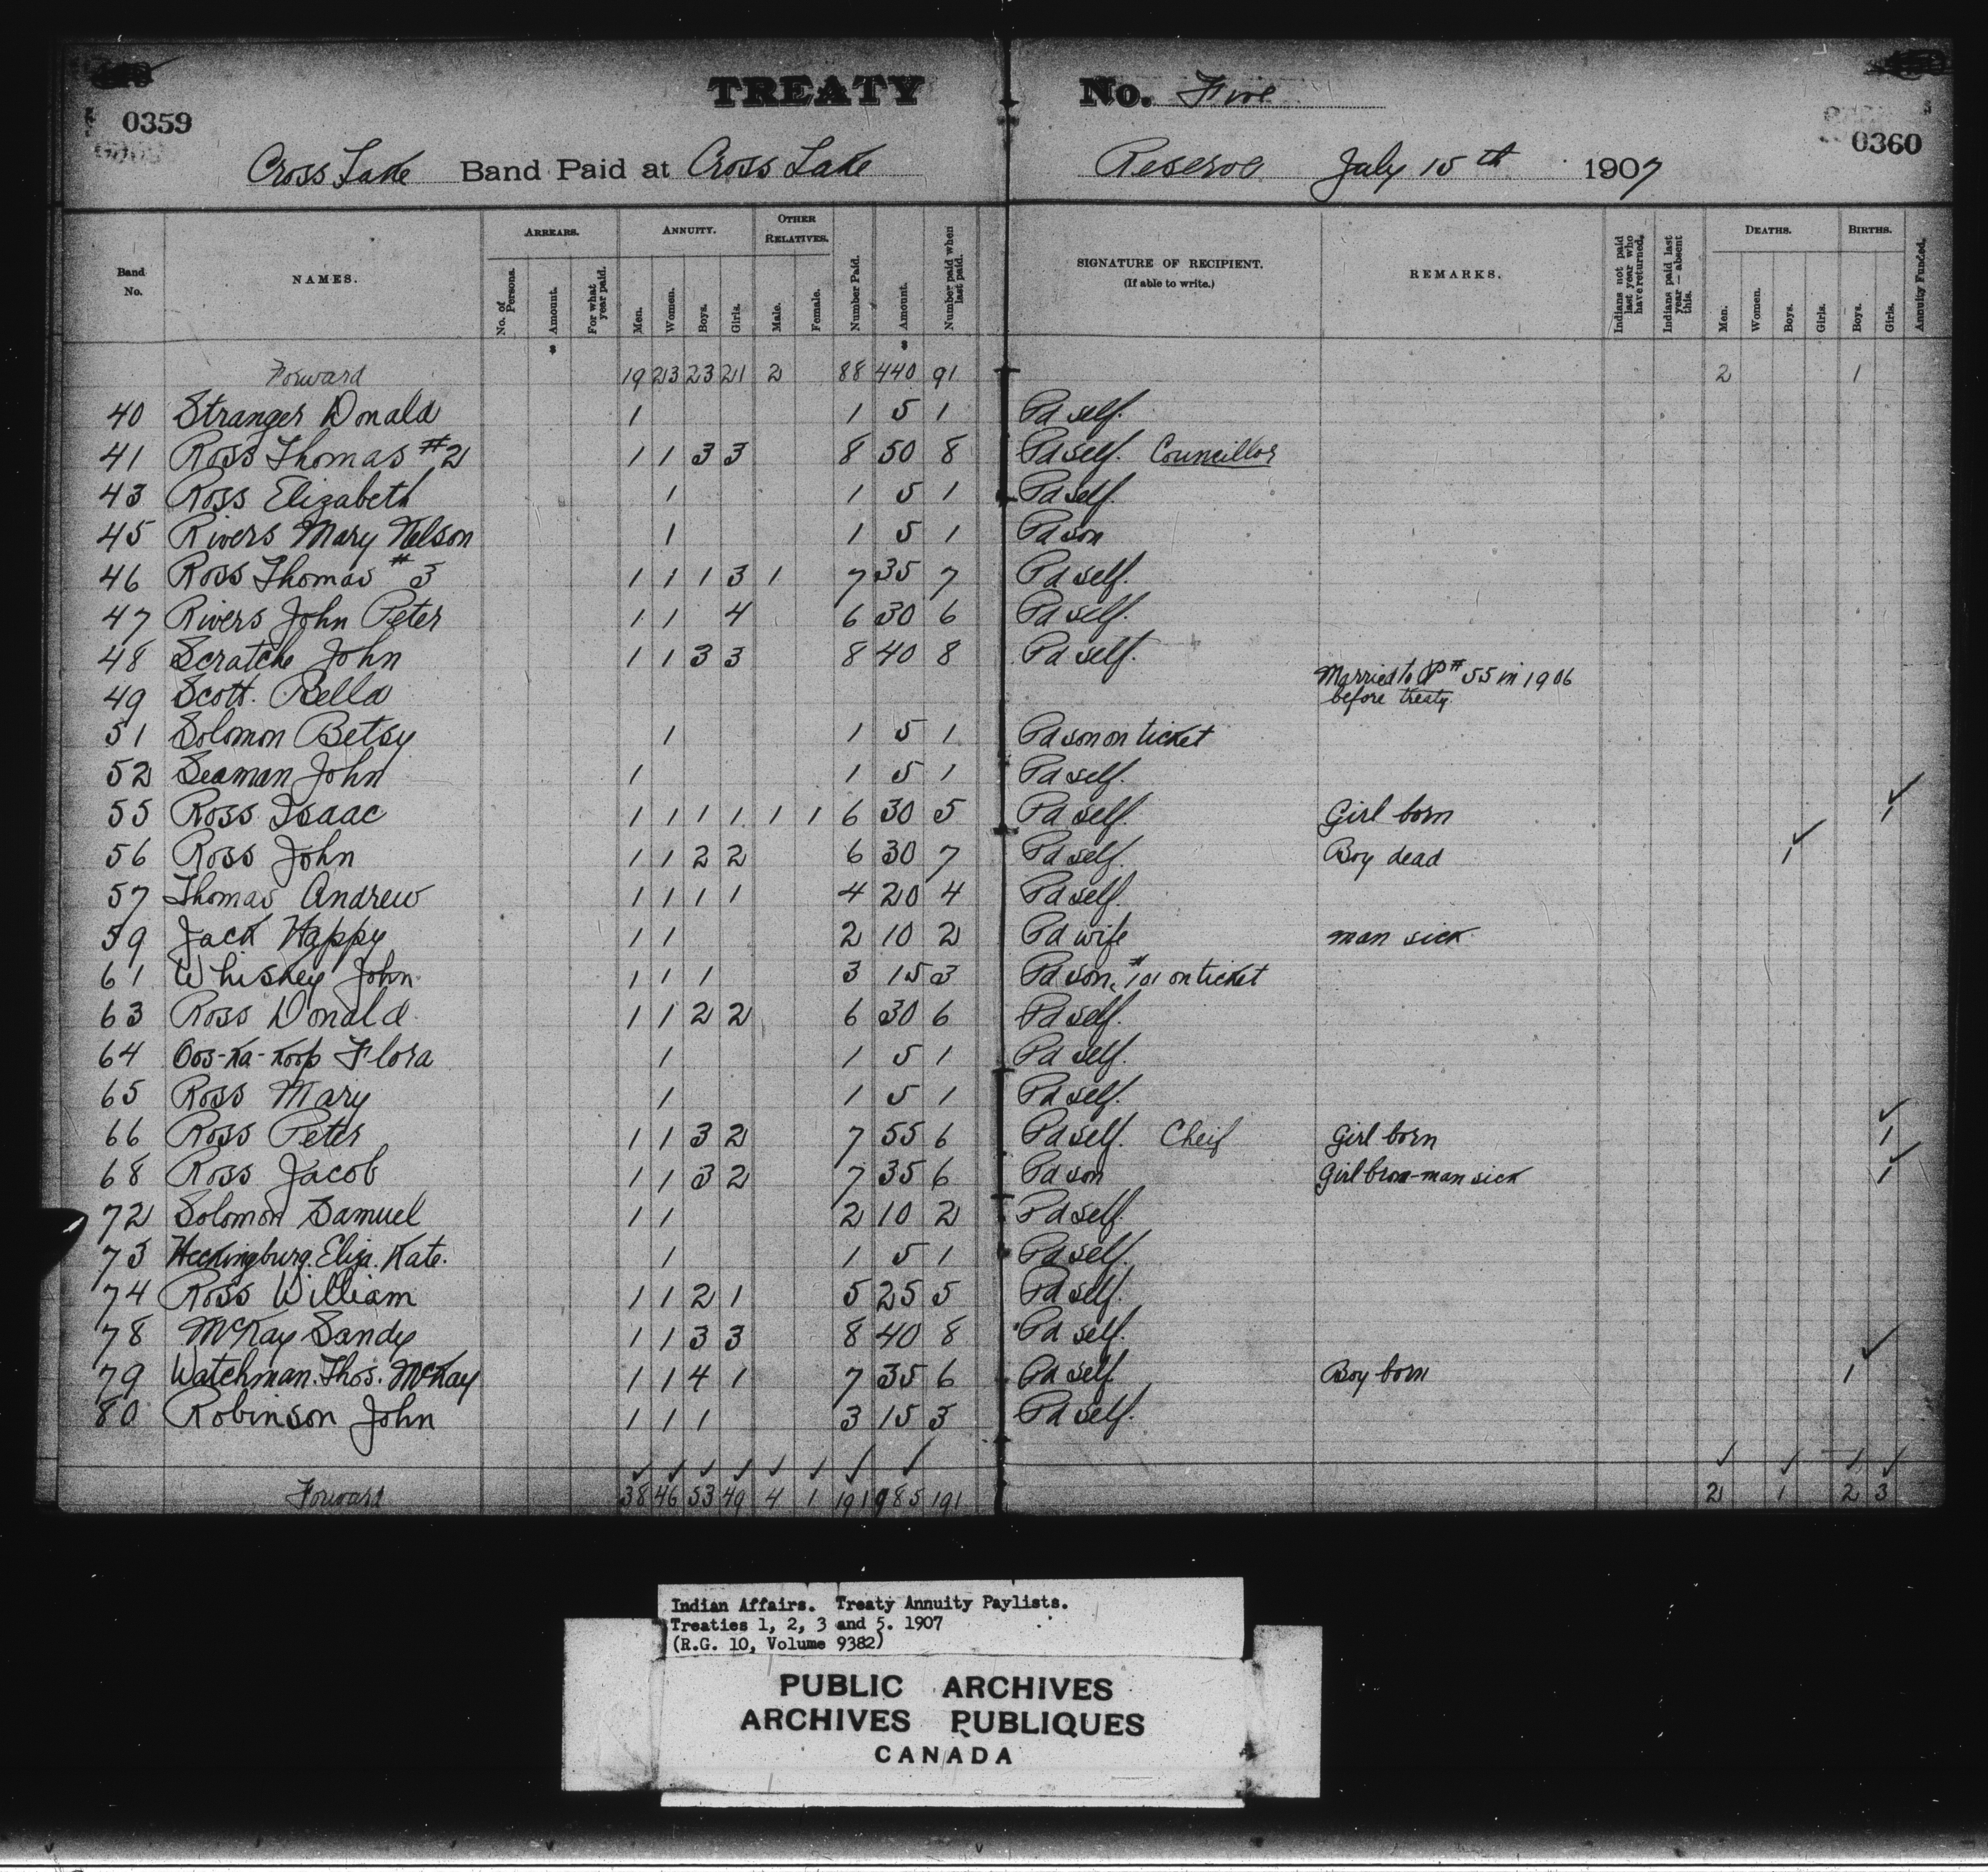 TREATY No. Five
0359
0360
Cross Lake Band Paid at Cross Lake Reserve July 15th 1907
Band No. NAMES. ARREARS. No. of Persons. Amount. For what year paid. ANNUITY. Men. Women. Boys. Girls. OTHER RELATIVES. Male. Female. Number Paid. Amount. Number paid when last paid. SIGNATURE OF RECIPIENT. (If able to write.) REMARKS. Indians not paid last year who have returned. Indians paid last year — absent this. DEATHS. Men. Women. Boys. Girls. BIRTHS. Boys. Girls. Annuity Funded.
$ $
Forward 19 23 23 21 2 88 440 91 2 1
40 Stranger Donald 1 1 5 1 Pd self.
41 Ross Thomas #2 1 1 3 3 8 50 8 Pd self. Councillor
43 Ross Elizabeth 1 1 5 1 Pd self.
45 Rivers Mary Nelson 1 1 5 1 Pd son
46 Ross Thomas #3 1 1 1 3 1 7 35 7 Pd self.
47 Rivers John Peter 1 1 4 6 30 6 Pd self.
48 Scratch John 1 1 3 3 8 40 8 Pd self.
49 Scott. Bella Married to # 55 in 1906
before treaty.
51 Solomon Betsy 1 1 5 1 Pd son on ticket
52 Seaman John 1 1 5 1 Pd self.
55 Ross Isaac 1 1 1 1 1 1 6 30 5 Pd self. Girl born 1 ✓
56 Ross John 1 1 2 2 6 30 7 Pd self. Boy dead 1 ✓
57 Thomas Andrew 1 1 1 1 4 20 4 Pd self.
59 Jack Happy 1 1 2 10 2 Pd wife man sick
61 Whiskey John 1 1 1 3 15 3 Pd son, #101 on ticket
63 Ross Donald 1 1 2 2 6 30 6 Pd self.
64 Oos-ka-koop Flora 1 1 5 1 Pd self.
65 Ross Mary 1 1 5 1 Pd self.
66 Ross Peter 1 1 3 2 7 55 6 Pd self. Cheif Girl born 1 ✓
68 Ross Jacob 1 1 3 2 7 35 6 Pd son Girl bron-man sick 1 ✓
72 Solomon Samuel 1 1 2 10 2 Pd self.
73 Heckingburg. Eliza. Kate. 1 1 5 1 Pd self.
74 Ross William 1 1 2 1 5 25 5 Pd self.
78 McKay Sandy 1 1 3 3 8 40 8 Pd self.
79 Watchman. Thos. McKay 1 1 4 1 7 35 6 Pd self Boy born 1 ✓
80 Robinson John 1 1 1 3 15 3 Pd self.
✓ ✓ ✓ ✓ ✓ ✓ ✓ ✓ ✓ ✓ ✓ ✓
Forward 38 46 53 49 4 1 191 985 191 2 1 2 3
Indian Affairs. Treaty Annuity Paylists.
Treaties 1, 2, 3 and 5. 1907
(R.G. 10, Volume 9382)
PUBLIC ARCHIVES
ARCHIVES PUBLIQUES
CANADA